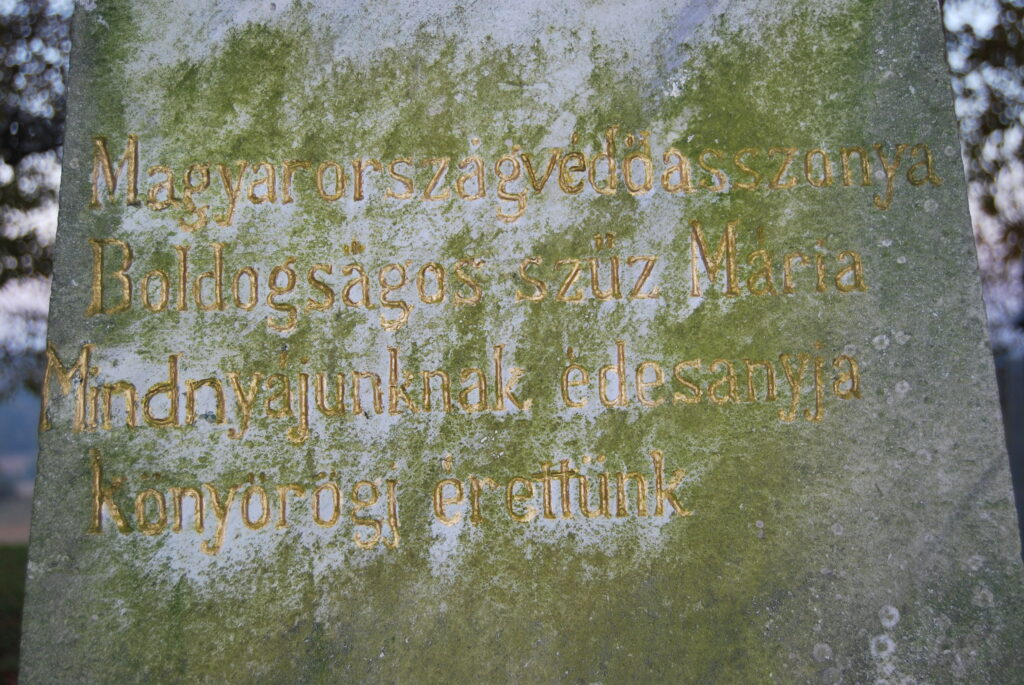 Magyarországvédőasszonya
Boldogságos szűz Mária
Mindnyájunknak édesanyja
könyörögj érettünk